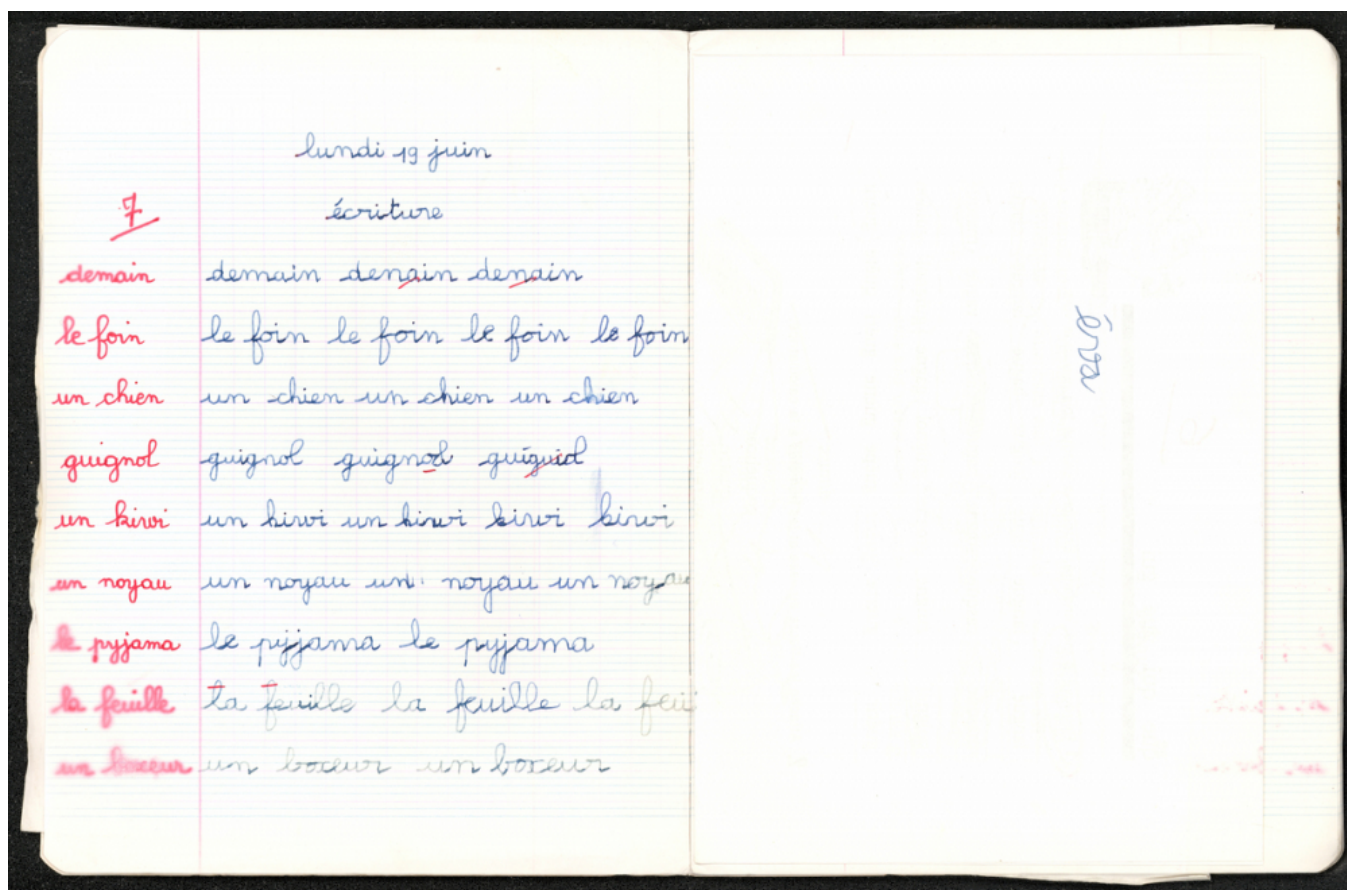 lundi 19 juin
7 écriture
demain demain denain denain
le foin le foin le foin le foin le foin
un chien un chien un chien un chien
guignol guignol guignol guiguid
un kiwi un kiwi un kiwi kiwi kiwi
un noyau un noyau un noyau un noyau
le pyjama le pyjama le pyjama
la feuille la feuille la feuille la feui
un boxeur un boxeur un boxeur